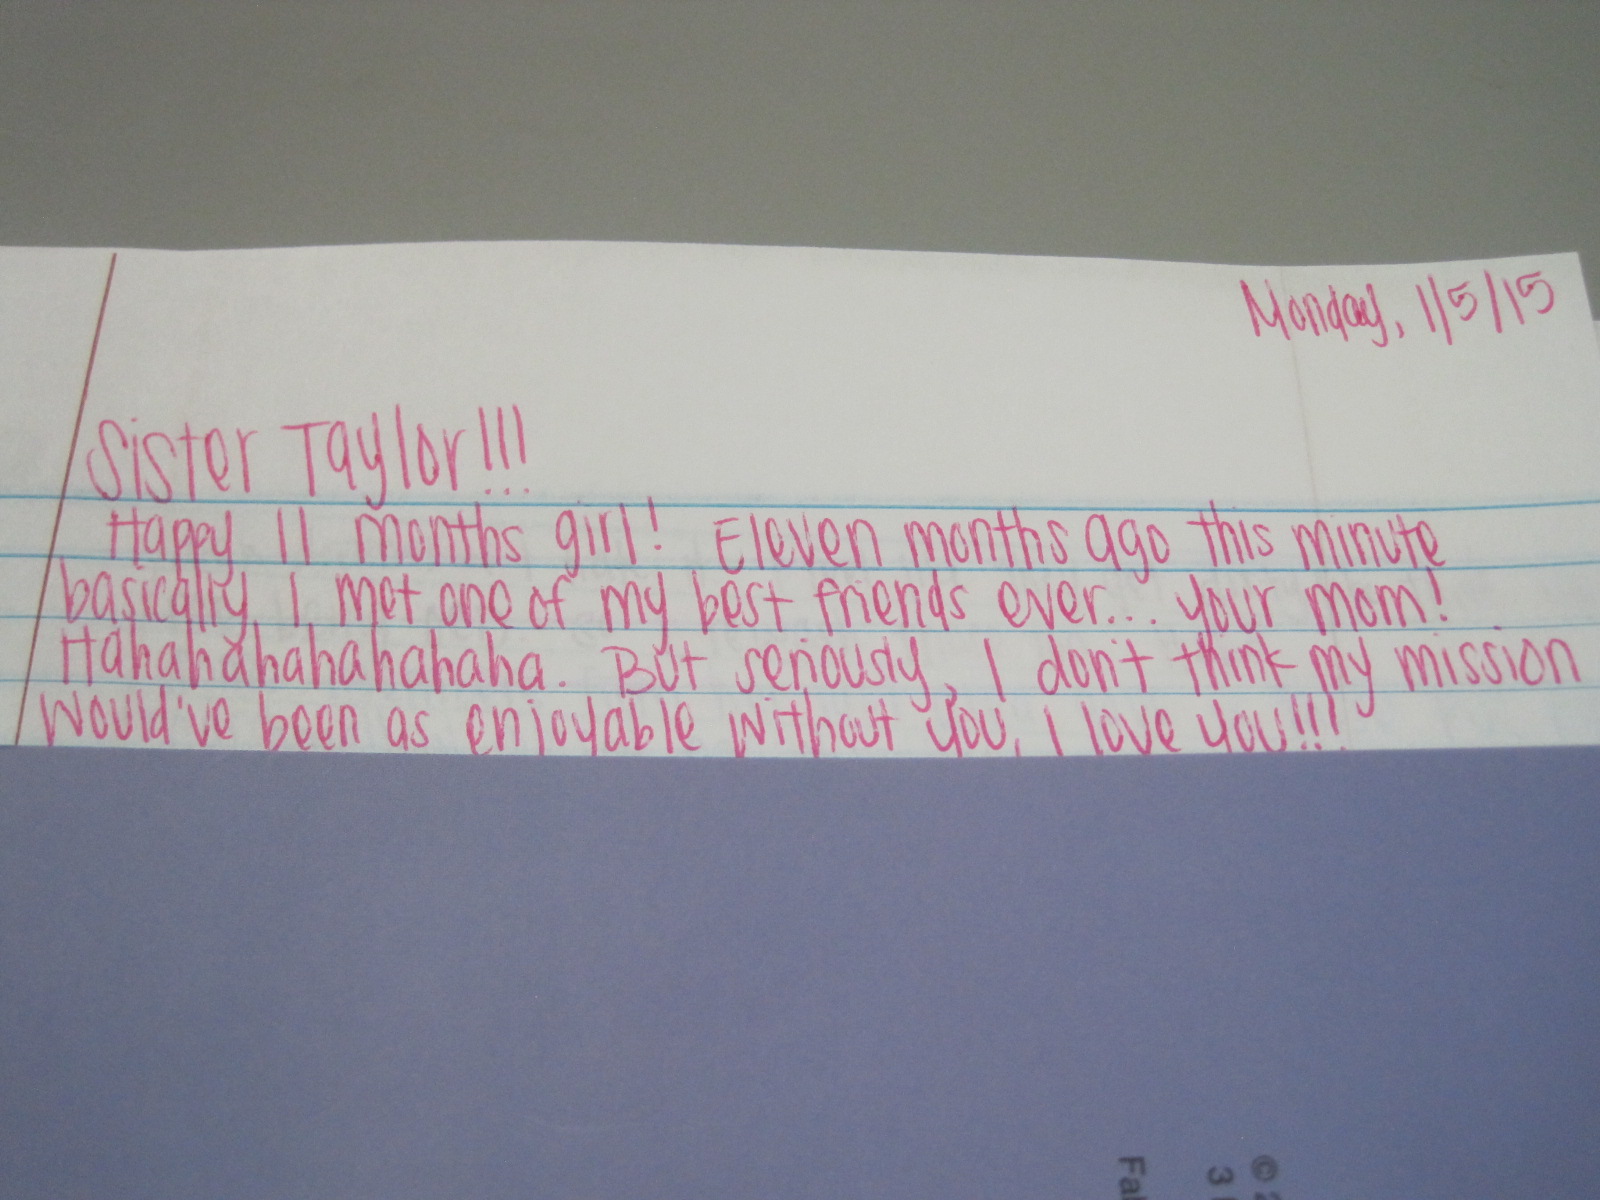 Monday, 1/5/15
Sister Taylor!!!
Happy 11 months girl! Eleven months ago this minute
basically, I met one of my best friends ever... your mom!
Hahahahahahahaha. But seriously, I don't think my mission
would've been as enjoyable without you. I love you!!!
© 2
3
Fal